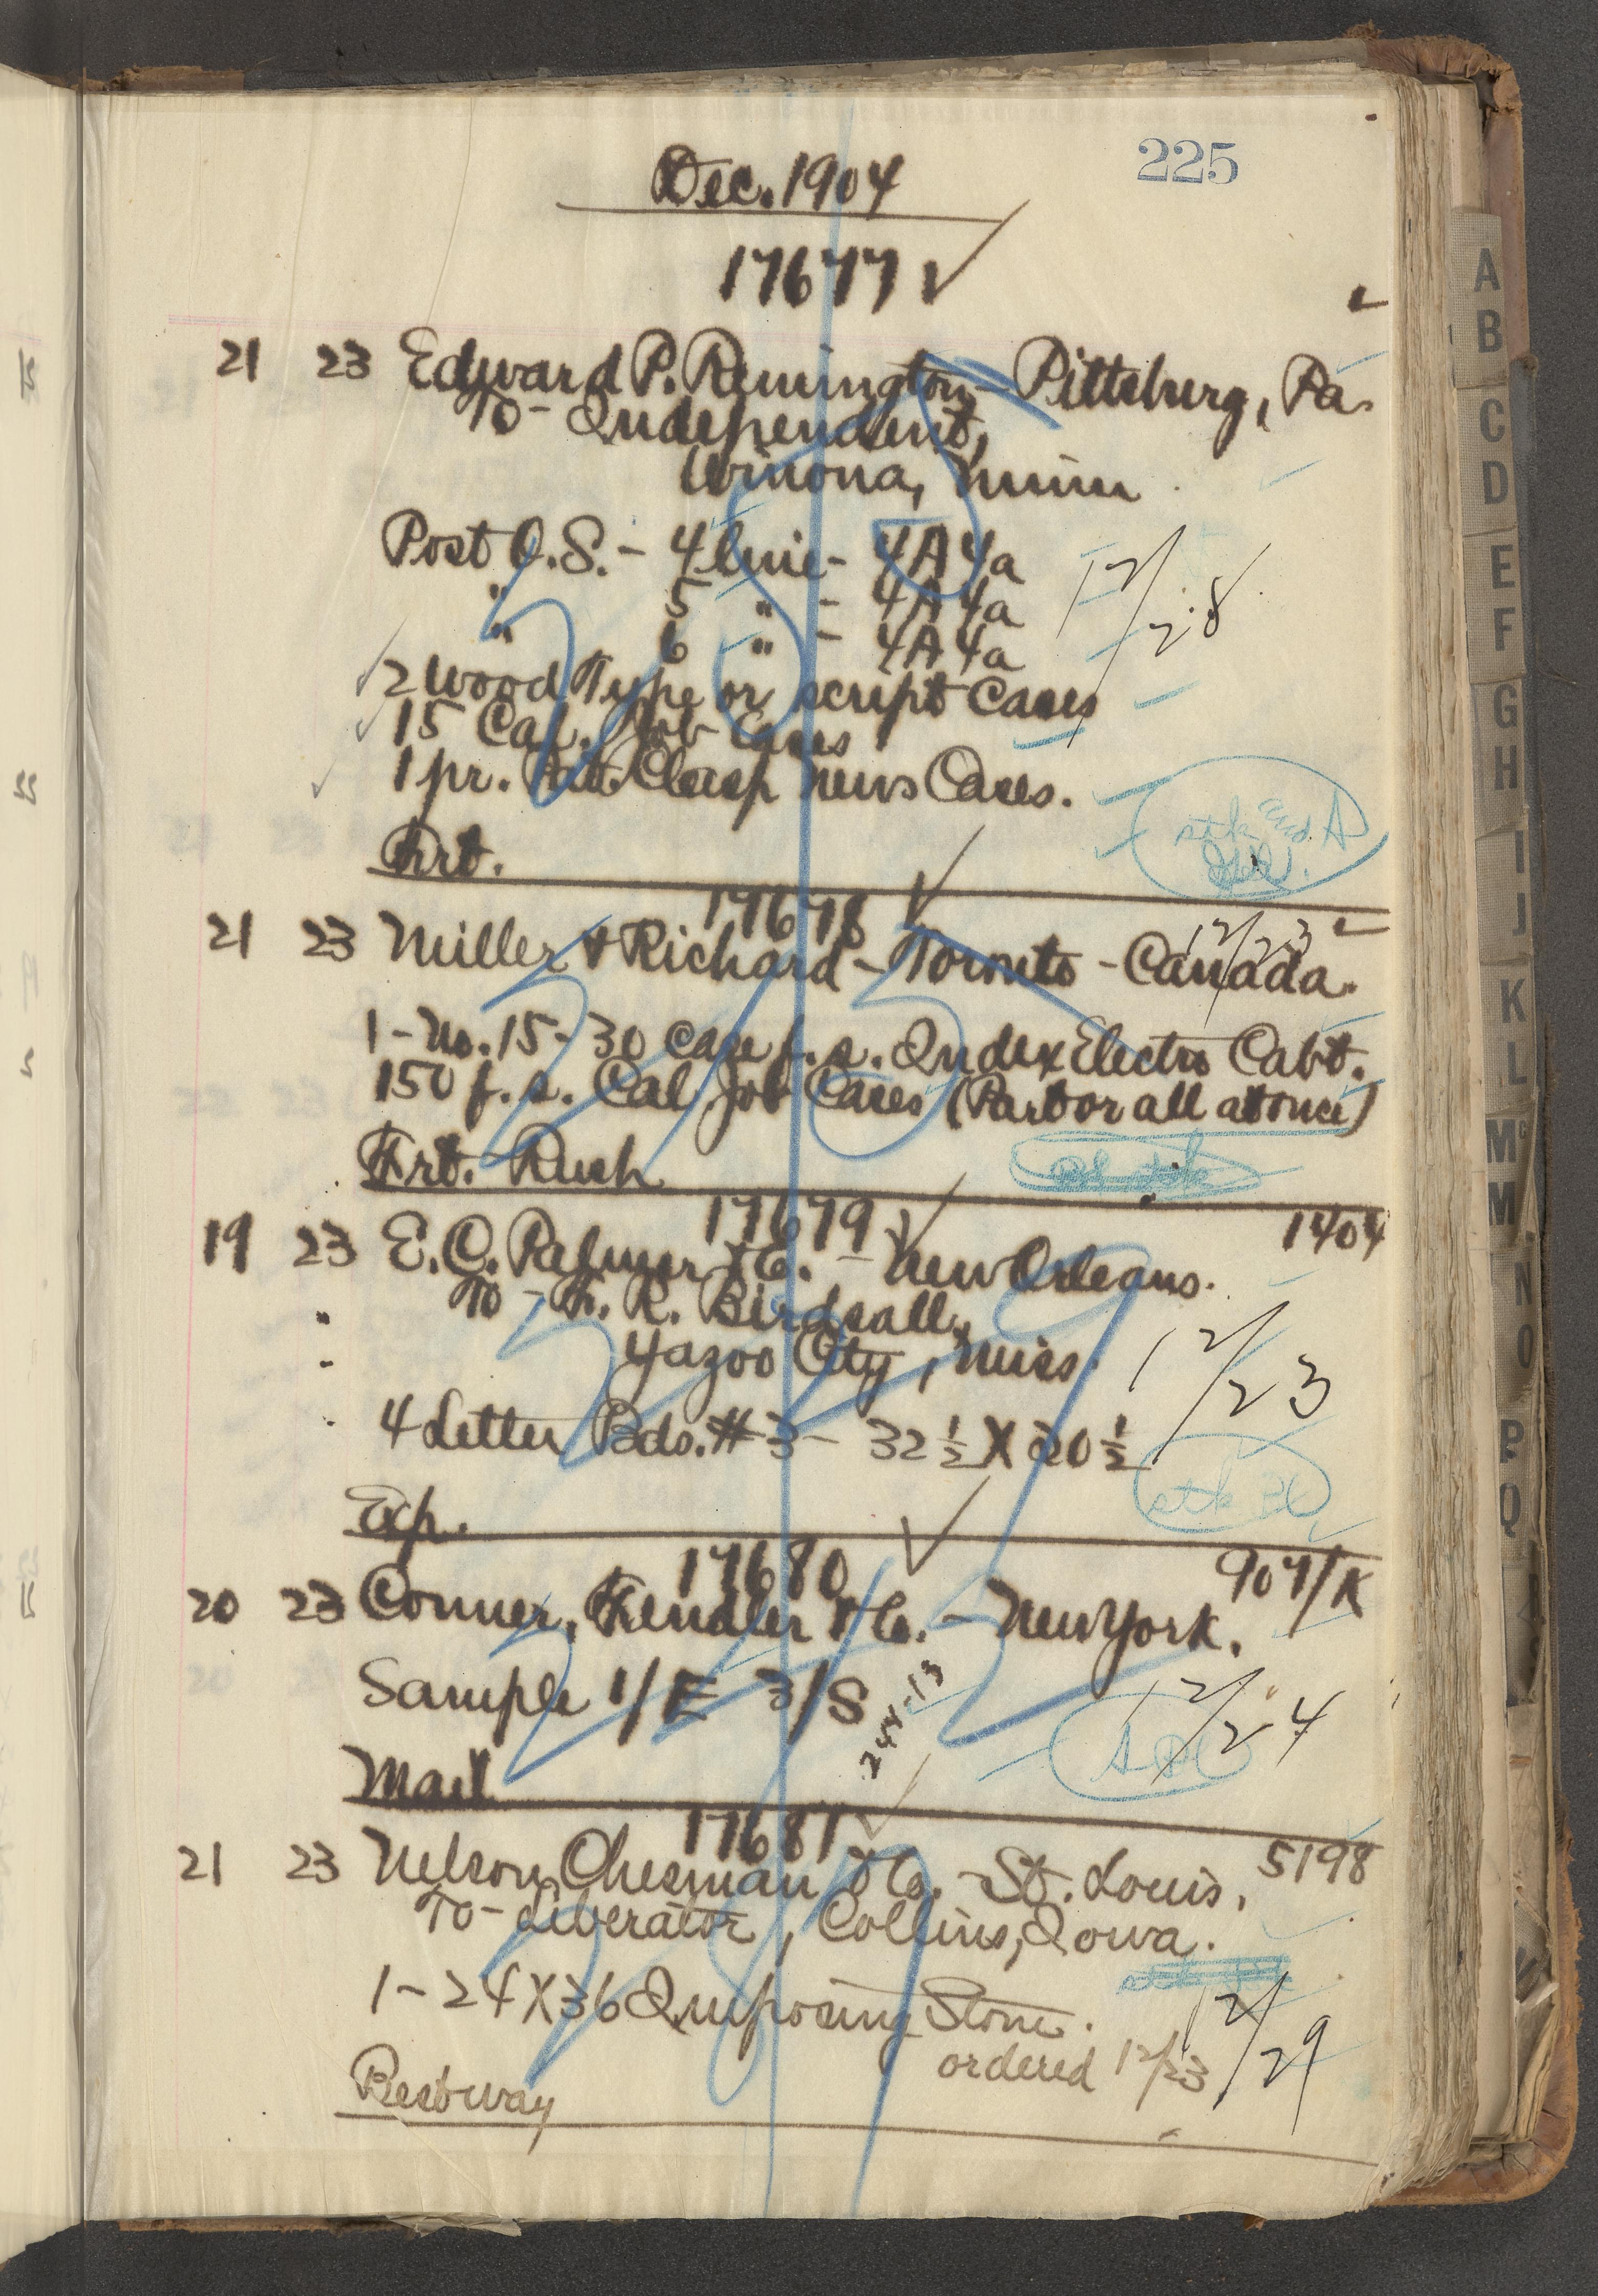 225
Dec. 1904
17677 ✓
21 23 Edward P. Remington - Pittsburg, Pa.
To - Independent,
Winona, Minn.
Post O.S. - 4 line - 4A 4a
" 5 " - 4A 4a
" 6 " - 4A 4a
12/28
2 Wood Type or script Cases
15 Cal. Job Cases
1 pr. News Cases.
stk and A
Frt.
17678 ✓
12/23
21 23 Miller & Richard - Toronto - Canada.
1 - No. 15 - 30 Case f.s. Index Electro Cabt.
150 f.s. Cal. Job Cases (Part or all at once)
Frt. Rush
17679 ✓
1404
19 23 E.C. Palmer & Co. - New Orleans.
To - F. R. Birdsall,
Yazoo City, Miss.
12/23
4 Letter Bds. #3 - 32 1/2 X 20 1/2
stk
Exp.
17680 ✓
907/K
20 23 Conner, Fendler & Co. - New York.
Sample 1/E 3/S
244-13
12/24
Mail
17681 ✓
5198
21 23 Nelson Chesman & Co. St. Louis,
To - Liberator, Collins, Iowa.
1 - 24 X 36 Imposing Stone.
12/29
ordered 12/23
Bestway
A
B
C
D
E
F
G
H
I
J
K
L
M
M
N
O
P
Q